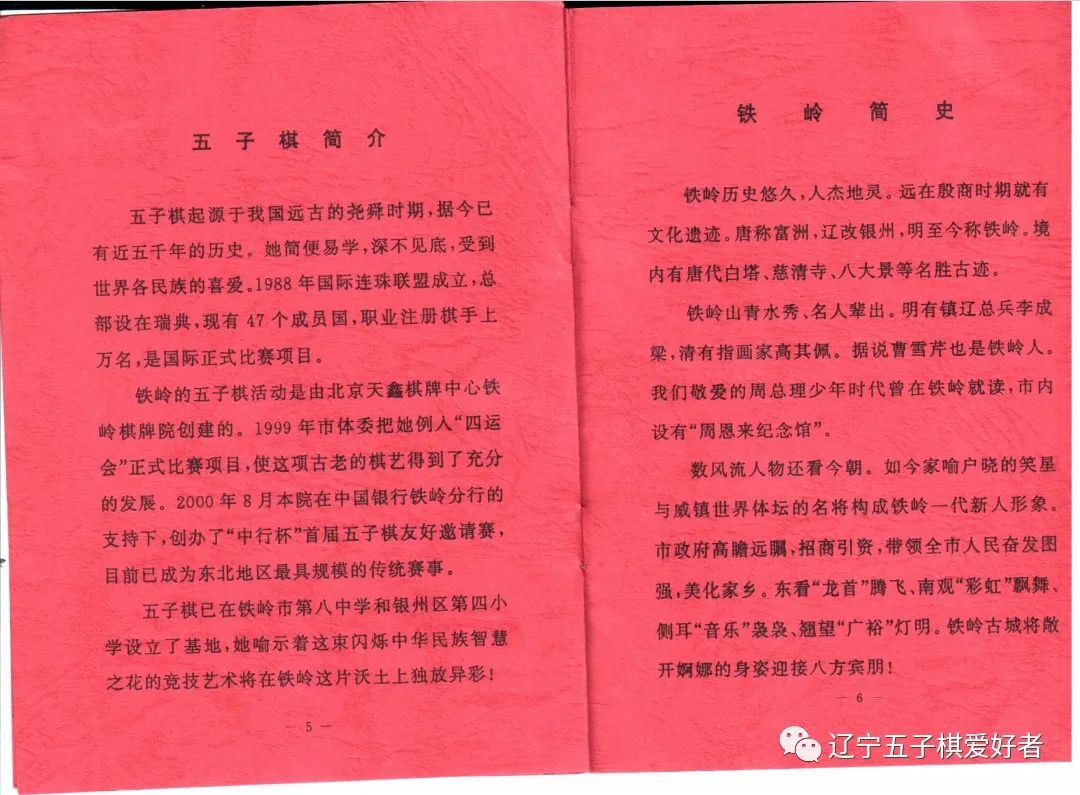 五子棋简介
五子棋起源于我国远古的尧舜时期，据今已
有近五千年的历史。她简便易学，深不见底，受到
世界各民族的喜爱。1988年国际连珠联盟成立，总
部设在瑞典，现有47个成员国，职业注册棋手上
万名，是国际正式比赛项目。
铁岭的五子棋活动是由北京天鑫棋牌中心铁
岭棋牌院创建的。1999年市体委把她例入“四运
会”正式比赛项目，使这项古老的棋艺得到了充分
的发展。2000年8月本院在中国银行铁岭分行的
支持下，创办了“中行杯”首届五子棋友好邀请赛，
目前已成为东北地区最具规模的传统赛事。
五子棋已在铁岭市第八中学和银州区第四小
学设立了基地，她喻示着这束闪烁中华民族智慧
之花的竞技艺术将在铁岭这片沃土上独放异彩！
— 5 —
铁岭简史
铁岭历史悠久，人杰地灵。远在殷商时期就有
文化遗迹。唐称富洲，辽改银州，明至今称铁岭。境
内有唐代白塔、慈清寺、八大景等名胜古迹。
铁岭山青水秀、名人辈出。明有镇辽总兵李成
梁，清有指画家高其佩。据说曹雪芹也是铁岭人。
我们敬爱的周总理少年时代曾在铁岭就读，市内
设有“周恩来纪念馆”。
数风流人物还看今朝。如今家喻户晓的笑星
与威镇世界体坛的名将构成铁岭一代新人形象。
市政府高瞻远瞩，招商引资，带领全市人民奋发图
强，美化家乡。东看“龙首”腾飞、南观“彩虹”飘舞、
侧耳“音乐”袅袅、翘望“广裕”灯明。铁岭古城将敞
开婀娜的身姿迎接八方宾朋！
— 6 —
辽宁五子棋爱好者